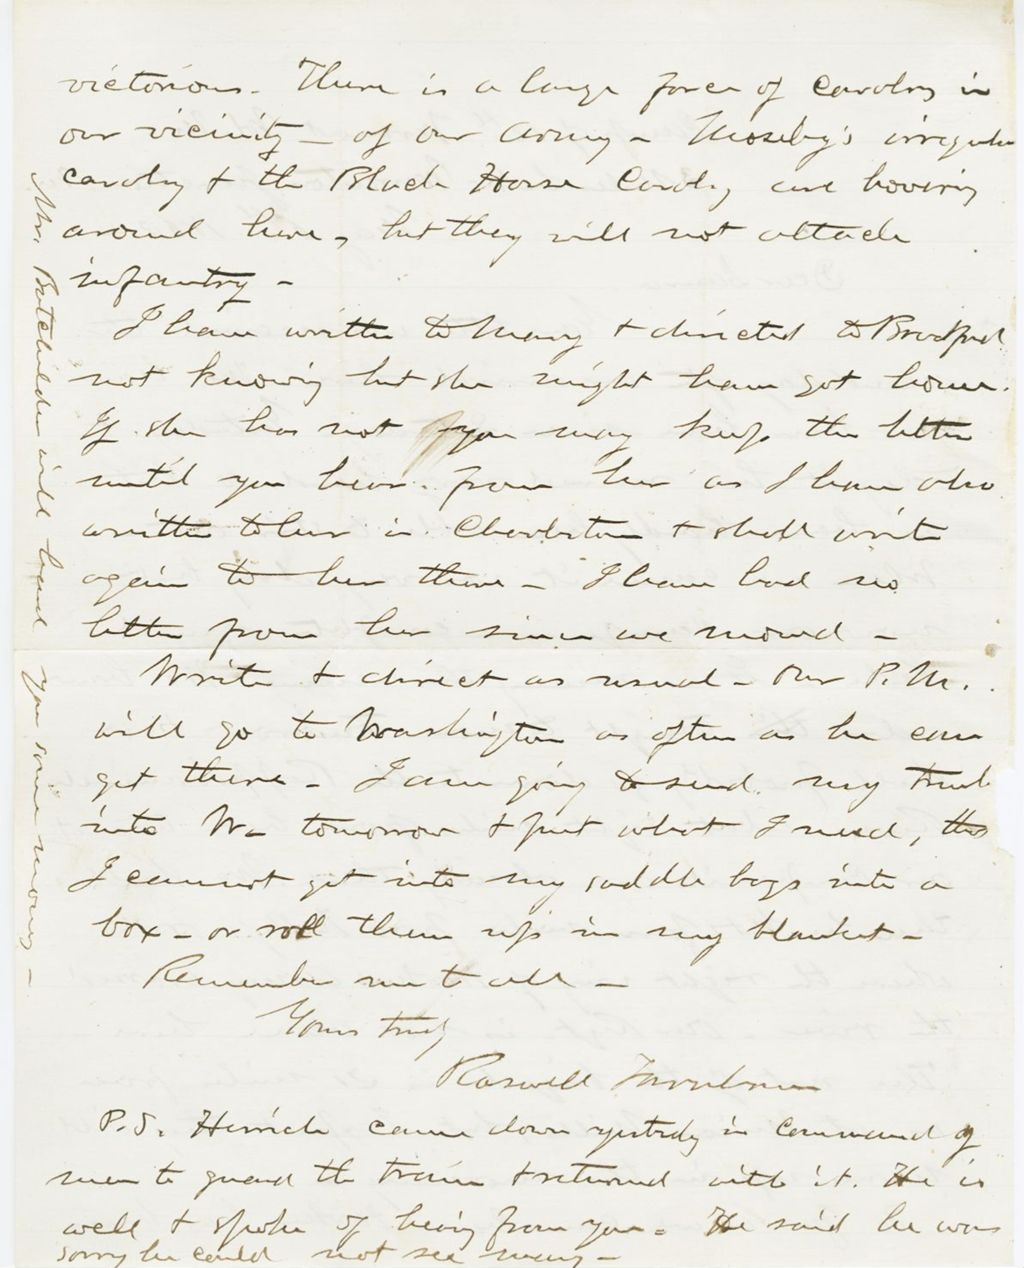 victorious. There is a large force of cavalry in
our vicinity – of our army – Moseby's irregular
cavalry & the Black Horse Cavalry are hovering
around here, but they will not attack
infantry –
I have written to Mary & directed to Bradford
not knowing but she might have got home.
If she has not you may keep the letter
until you hear from her as I have also
written to her in Charlestown & shall write
again to her there – I have had no
letter from her since we moved –
Write & direct as usual – Our P.M.
will go to Washington as often as he can
get there – I am going to send my trunk
into W– tomorrow & put what I need, tha
I cannot get into my saddle bags into a
box – or roll them up in my blanket –
Remember me to all –
Yours truly
Roswell Farnham
P.S. Herrick came down yesterday in command of
men to guard the train & returned with it. He is
well & spoke of hearing from you. He said he was
sorry he could not see many –
Mr. Batchelder will hand you some money –